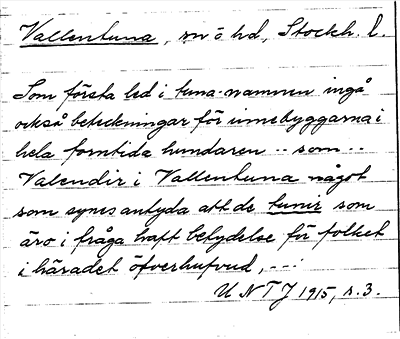 Vallentuna, sn o hd, Stockh. l.
Som första led i tuna-namnen ingå
också beteckningar för innebyggarna i
hela forntida hundaren -- som --
Valendir i Vallentuna något
som synes antyda att de tunir som
äro i fråga haft betydelse för folket
i häradet öfverhufvud, ---
UNTJ 1915, s. 3.